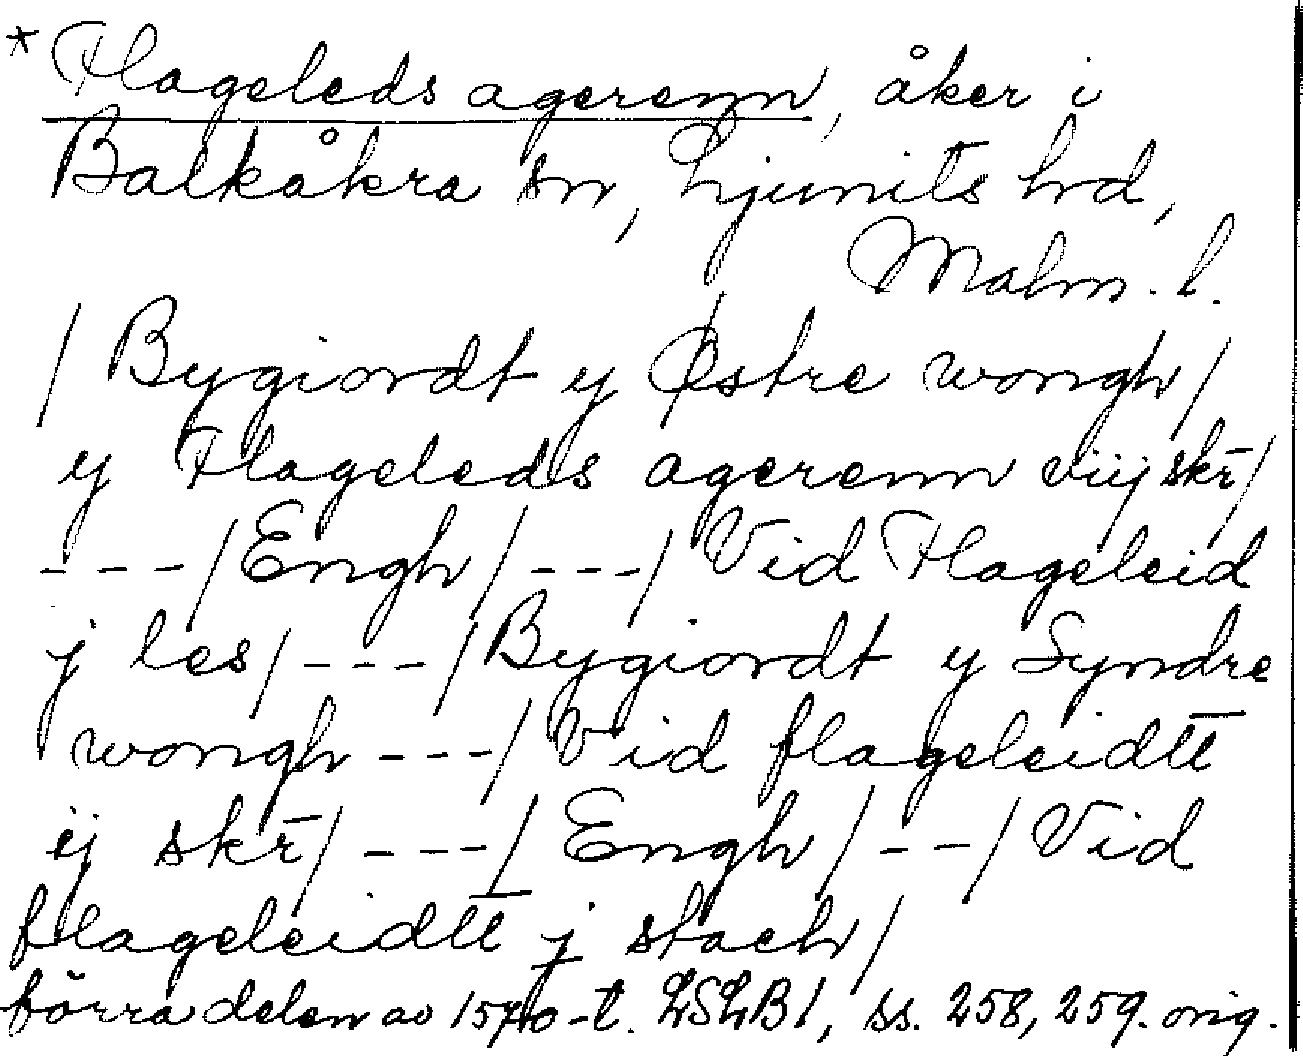 * Flageleds agerenn, åker i
Balkåkra sn, Ljunits hd,
Malm. l.
/ Bygiordt y Østre wongh/
y Flageleds agerenn viij skr/
- - - / Engh / - - - / Vid Flageleid
j les / - - - / Bygiordt y Syndre
wongh - - - / Vid flageleidtt
ij skr / - - - / Engh / - - / Vid
flageleidtt j stach/
förra delen av 1570-t. LSLB1, ss. 258, 259. orig.